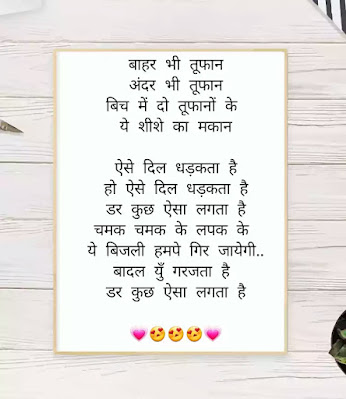 बाहर भी तूफान
अंदर भी तूफान
बिच में दो तूफानों के
ये शीशे का मकान
ऐसे दिल धड़कता है
हो ऐसे दिल धड़कता है
डर कुछ ऐसा लगता है
चमक चमक के लपक के
ये बिजली हमपे गिर जायेगी..
बादल युँ गरजता है
डर कुछ ऐसा लगता है
💗😍😍😍💗